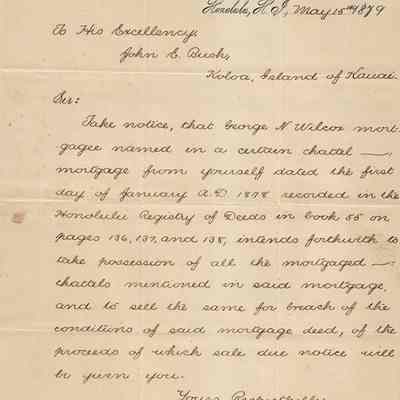 Honolulu, H. I., May 15th 1879
To His Excellency,
John E. Bush,
Koloa, Island of Kauai.
Sir:
Take notice, that George N Wilcox mort-
gagee named in a certain chattel —
mortgage from yourself dated the first
day of January A.D. 1878 recorded in the
Honolulu Registry of Deeds in book 55 on
pages 136, 137, and 138, intends forthwith to
take possession of all the mortgaged —
chattels mentioned in said mortgage,
and to sell the same for breach of the
conditions of said mortgage deed, of the
proceeds of which sale due notice will
be given you.
Yours Respectfully